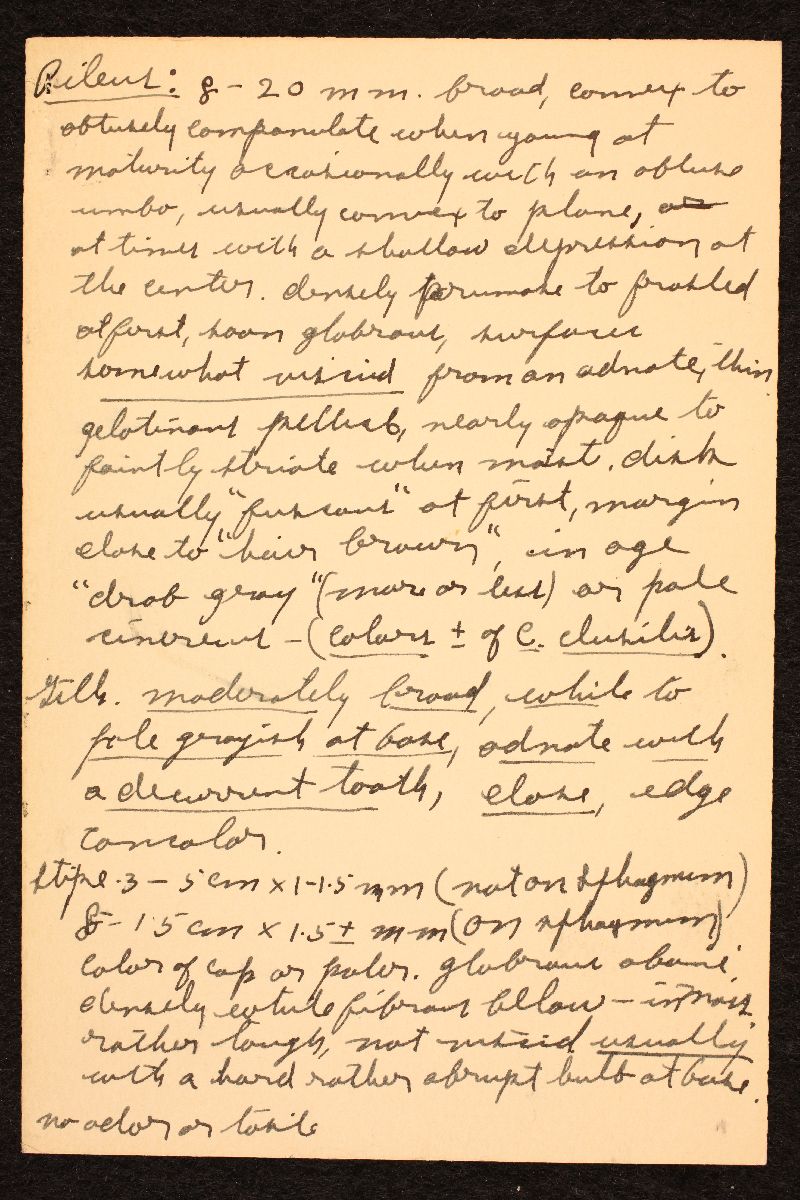 Pileus: 8 - 20 mm. broad, convex to
obtusely companulate when young at
maturity occasionally with an obtuse
umbo, usually convex to plane, or
at times with a shallow depression at
the center. densely pruinose to frosted
at first, soon glabrous, surface
somewhat viscid from an adnate, thin
gelatinous pellicle, nearly opaque to
faintly striate when moist. disk
usually "fuscous" at first, margin
close to "hair brown", in age
"drab gray" (more or less) or pale
cinereus - (colors ± of C. clusilis).
Gills. moderately broad, white to
pale grayish at base, adnate with
a decurrent tooth, close, edge
concolor.
Stipe. 3 - 5 cm x 1-1.5 mm (not on sphagnum)
8 - 15 cm x 1.5 ± mm (on sphagnum)
color of cap or paler. glabrous above,
densely white fibrous below -
rather tough, not viscid usually
with a hard rather abrupt bulb at base.
no odor or taste